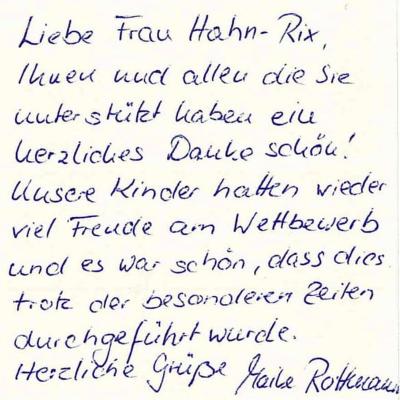 Liebe Frau Hahn-Rix,
Ihnen und allen die Sie
unterstützt haben ein
herzliches Danke schön!
Unsere Kinder hatten wieder
viel Freude am Wettbewerb
und es war schön, dass dies
trotz der besonderen Zeiten
durchgeführt wurde.
Herzliche Grüße Maike Rottmann